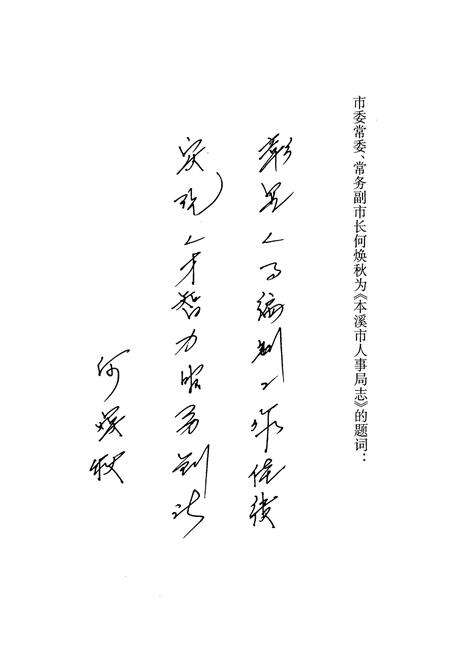 市委常委、常务副市长何焕秋为《本溪市人事局志》的题词：
彰显人事编制工作佳绩
实现人才智力
何焕秋